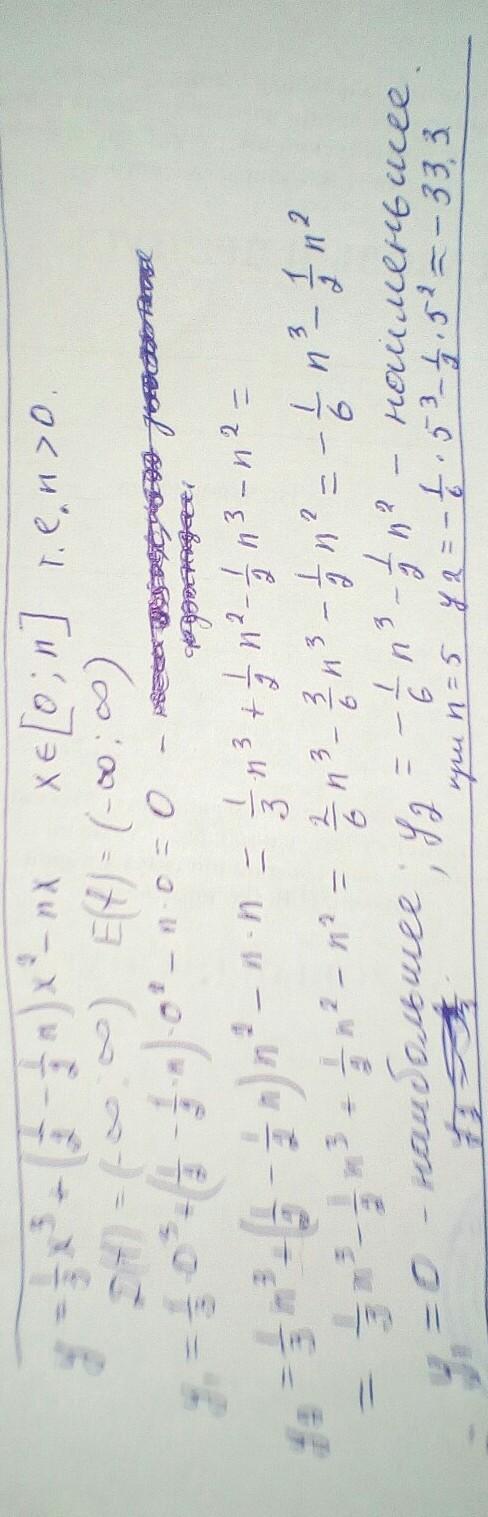 y = 1/3 x³ + (1/2 - 1/2 n) x² - nx x ∈ [0; n] т.е. n > 0.
D(f) = (-∞; ∞) E(f) = (-∞; ∞)
y₁ = 1/3 · 0³ + (1/2 - 1/2 · n) · 0² - n · 0 = 0 -
y₂ = 1/3 n³ + (1/2 - 1/2 n) n² - n · n = 1/3 n³ + 1/2 n² - 1/2 n³ - n² =
= 1/3 n³ - 1/2 n³ + 1/2 n² - n² = 2/6 n³ - 3/6 n³ - 1/2 n² = - 1/6 n³ - 1/2 n²
y₁ = 0 - наибольшее; y₂ = - 1/6 n³ - 1/2 n² - наименьшее.
при n = 5 y₂ = - 1/6 · 5³ - 1/2 · 5² = - 33,3